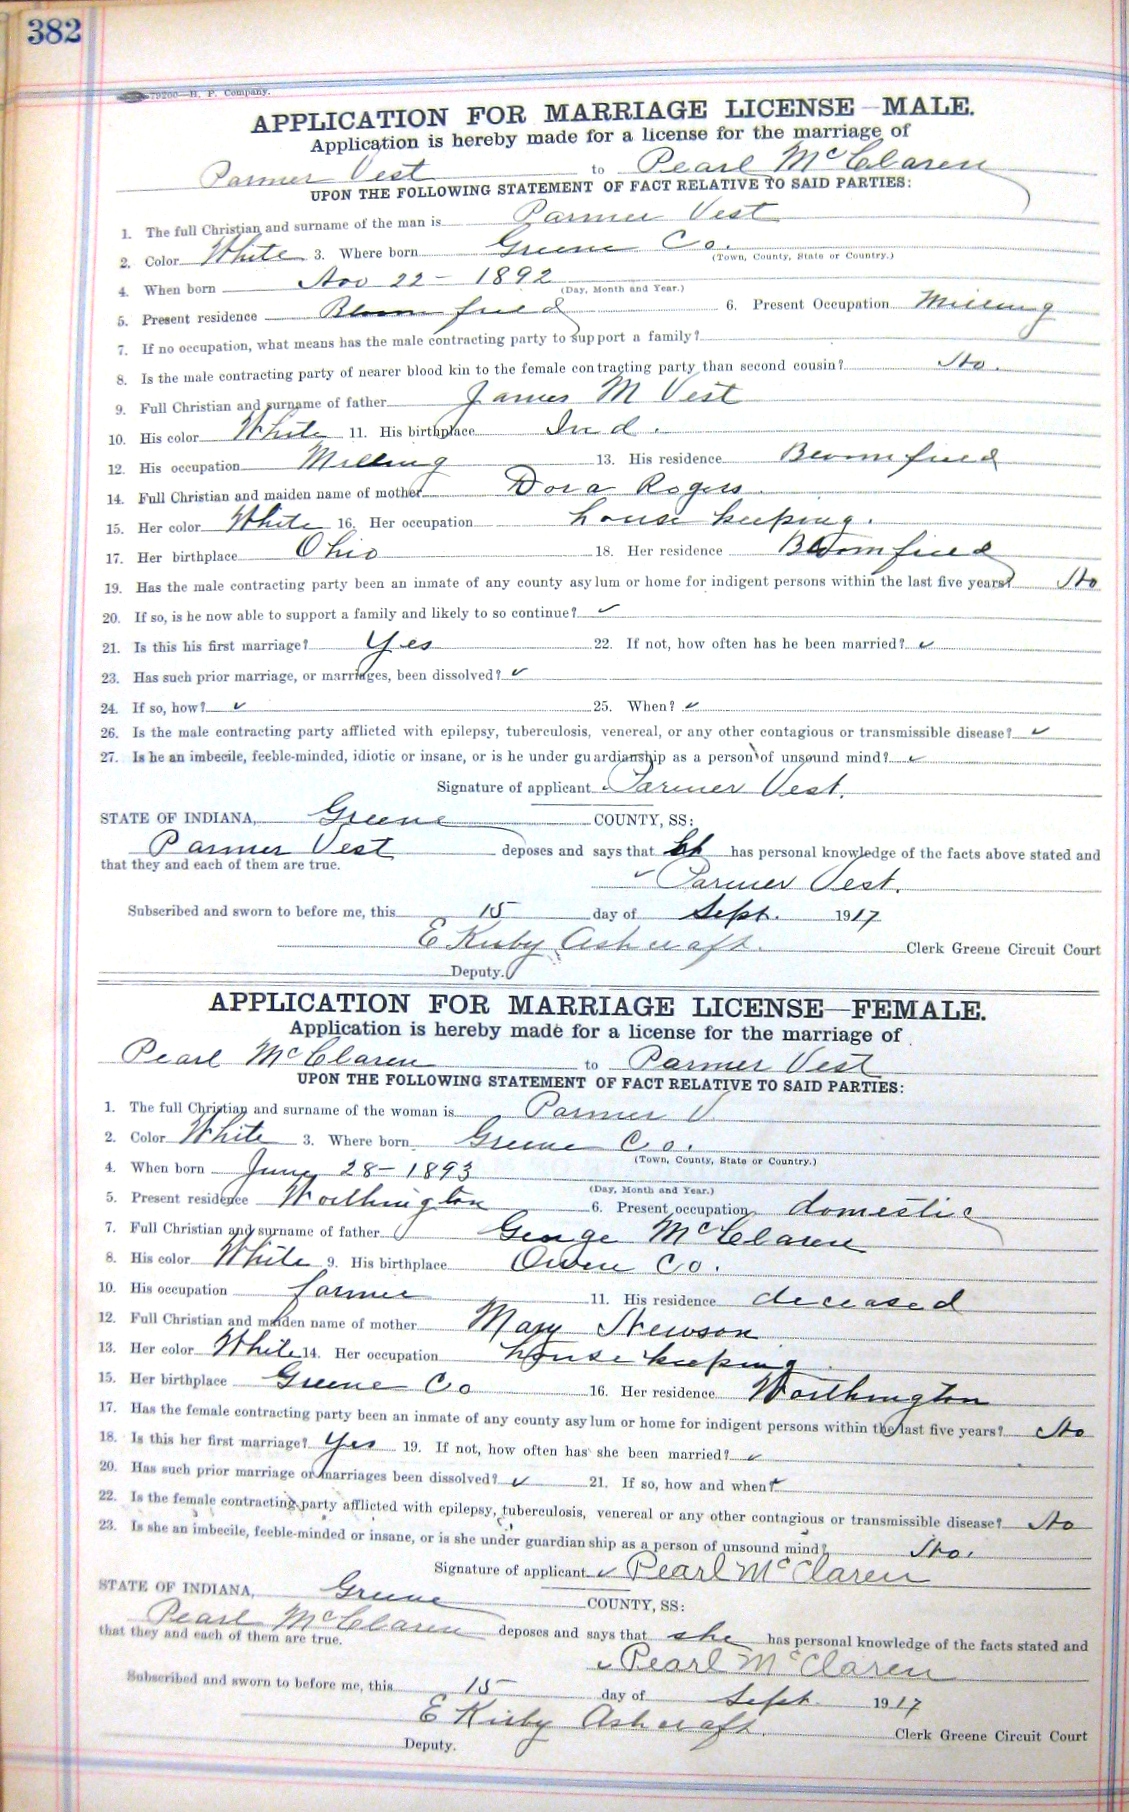 382
79200—H. P. Company.
APPLICATION FOR MARRIAGE LICENSE—MALE.
Application is hereby made for a license for the marriage of
Parmer Vest to Pearl McClaren
UPON THE FOLLOWING STATEMENT OF FACT RELATIVE TO SAID PARTIES:
1. The full Christian and surname of the man is Parmer Vest
2. Color White 3. Where born Greene Co.
(Town, County, State or Country.)
4. When born Nov 22 - 1892
(Day, Month and Year.)
5. Present residence Bloomfield 6. Present Occupation Milling
7. If no occupation, what means has the male contracting party to support a family?
8. Is the male contracting party of nearer blood kin to the female contracting party than second cousin? No.
9. Full Christian and surname of father James M Vest
10. His color White 11. His birthplace Ind.
12. His occupation Milling 13. His residence Bloomfield
14. Full Christian and maiden name of mother Dora Rogers.
15. Her color White 16. Her occupation house keeping.
17. Her birthplace Ohio 18. Her residence Bloomfield
19. Has the male contracting party been an inmate of any county asylum or home for indigent persons within the last five years? No
20. If so, is he now able to support a family and likely to so continue? ✓
21. Is this his first marriage? Yes 22. If not, how often has he been married? ✓
23. Has such prior marriage, or marriages, been dissolved? ✓
24. If so, how? ✓ 25. When? ✓
26. Is the male contracting party afflicted with epilepsy, tuberculosis, venereal, or any other contagious or transmissible disease? ✓
27. Is he an imbecile, feeble-minded, idiotic or insane, or is he under guardianship as a person of unsound mind? ✓
Signature of applicant Parmer Vest.
STATE OF INDIANA, Greene COUNTY, SS:
Parmer Vest deposes and says that he has personal knowledge of the facts above stated and
that they and each of them are true.
✓ Parmer Vest.
Subscribed and sworn to before me, this 15 day of Sept. 1917
E Kirby Ashcraft. Clerk Greene Circuit Court
Deputy.
APPLICATION FOR MARRIAGE LICENSE—FEMALE.
Application is hereby made for a license for the marriage of
Pearl McClaren to Parmer Vest
UPON THE FOLLOWING STATEMENT OF FACT RELATIVE TO SAID PARTIES:
1. The full Christian and surname of the woman is Parmer V
2. Color White 3. Where born Greene Co.
(Town, County, State or Country.)
4. When born June 28 - 1893
(Day, Month and Year.)
5. Present residence Worthington 6. Present occupation domestic
7. Full Christian and surname of father George McClaren
8. His color White 9. His birthplace Owen Co.
10. His occupation farmer 11. His residence deceased
12. Full Christian and maiden name of mother Mary Newson
13. Her color White 14. Her occupation house keeping
15. Her birthplace Greene Co 16. Her residence Worthington
17. Has the female contracting party been an inmate of any county asylum or home for indigent persons within the last five years? No
18. Is this her first marriage? Yes 19. If not, how often has she been married? ✓
20. Has such prior marriage or marriages been dissolved? ✓ 21. If so, how and when? ✓
22. Is the female contracting party afflicted with epilepsy, tuberculosis, venereal or any other contagious or transmissible disease? No
23. Is she an imbecile, feeble-minded or insane, or is she under guardianship as a person of unsound mind? No.
Signature of applicant ✓ Pearl McClaren
STATE OF INDIANA, Greene COUNTY, SS:
Pearl McClaren deposes and says that she has personal knowledge of the facts stated and
that they and each of them are true.
✓ Pearl McClaren
Subscribed and sworn to before me, this 15 day of Sept. 1917
E Kirby Ashcraft. Clerk Greene Circuit Court
Deputy.